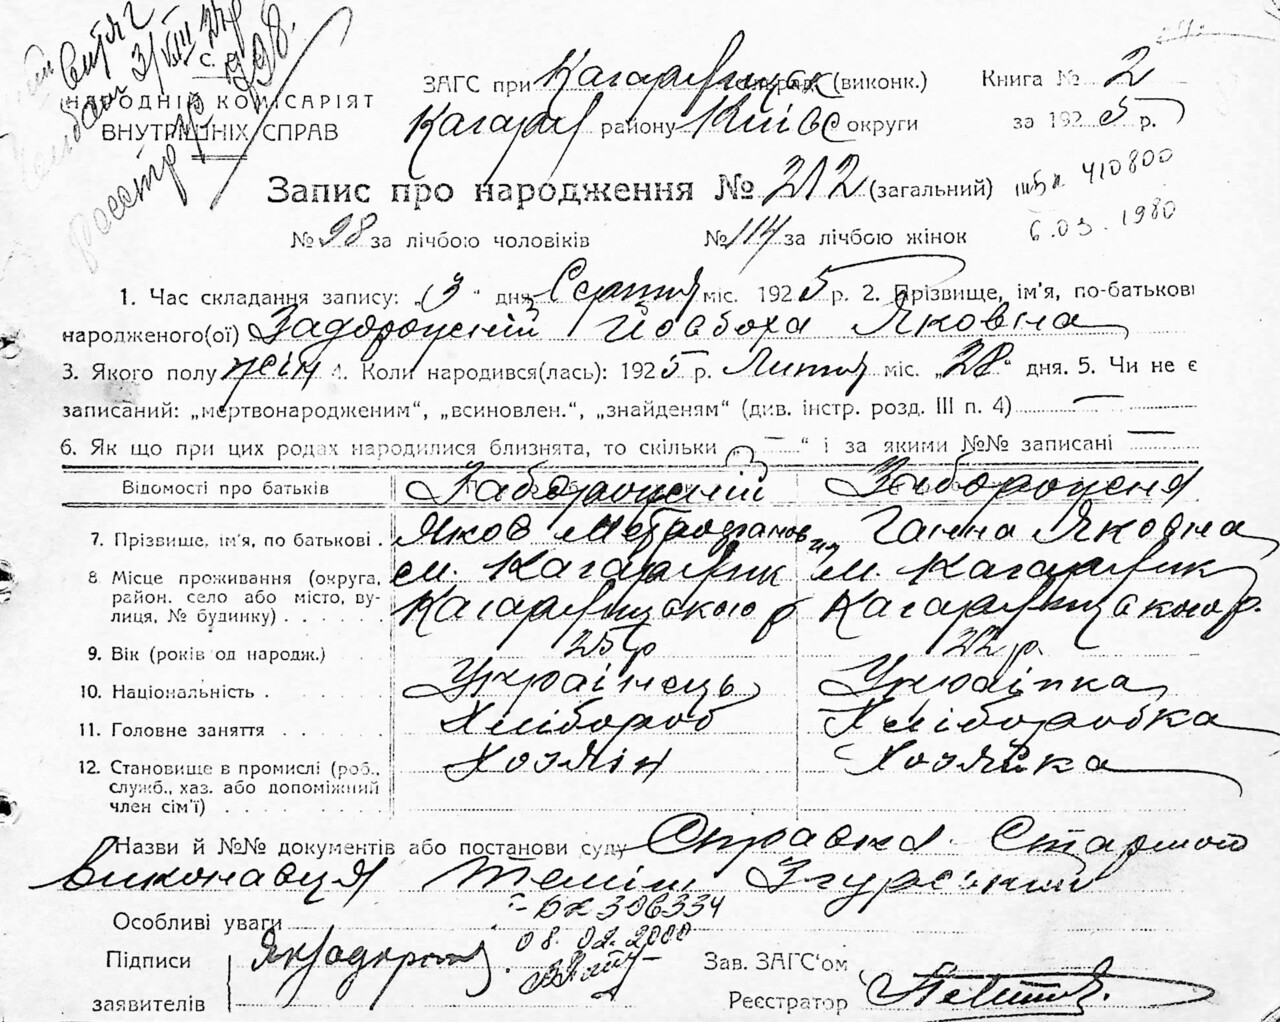 витяг
31/VIII 24р
реєстр № 998.
С. Р.
НАРОДНІЙ КОМІСАРІЯТ
ВНУТРІШНІХ СПРАВ
ЗАГС при Кагарлицьк (виконк.) Книга № 2
Кагарл району Київс округи за 1925 р.
Запис про народження № 212 (загальний)
№ 98 за лічбою чоловіків № 114 за лічбою жінок
410800
6.03.1980
1. Час складання запису: „3“ дня Серпня міс. 1925 р. 2. Прізвище, ім'я, по-батькові
народженого(ої) Задорожній Яковна
3. Якого полу жін 4. Коли народився(лась): 1925 р. Лютня міс. „28“ дня. 5. Чи не є
записаний: „мертвонародженим“, „всиновлен.“, „знайденям“ (див. інстр. розд. III п. 4) —
6. Як що при цих родах народилися близнята, то скільки „—“ і за якими №№ записані —
Відомості про батьків Задорожній
7. Прізвище, ім'я, по батькові . Яков Ганна Яковна
8. Місце проживання (округа, м. Кагарлик м. Кагарлик
район, село або місто, ву-
лиця, № будинку) . . . . . Кагарлицького р Кагарлицького р.
9. Вік (років од народж.) 25 р 22 р.
10. Національність . Українець Українка
11. Головне заняття . . . . . Хлібороб Хліборобка
12. Становище в промислі (роб., Хозяїн Хозяйка
служб., хаз. або допоміжний
член сім'ї) . . . . . . . .
Назви й №№ документів або постанови суду Справка Старшого
виконавця Згурський
Особливі уваги — БК 306334
08.02.2000
Підписи
заявителів
Зав. ЗАГС'ом
Реєстратор